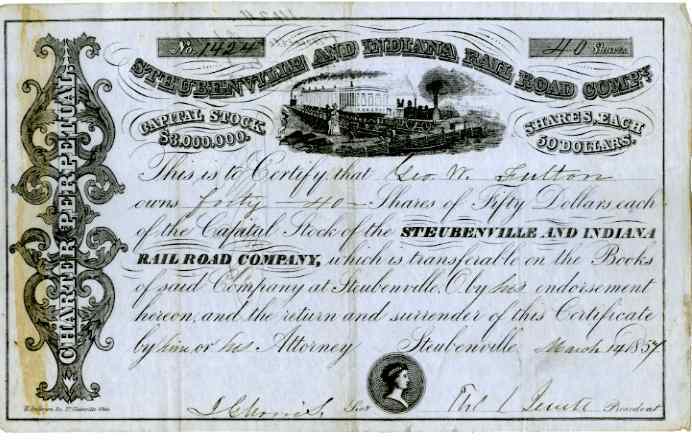 No. 1424
40 Shares
STEUBENVILLE AND INDIANA RAIL ROAD COMPY.
CAPITAL STOCK
$3,000,000.
SHARES, EACH
50 DOLLARS.
CHARTER PERPETUAL.
This is to Certify that Geo W. Fulton
owns forty - 40 - Shares of Fifty Dollars each
of the Capital Stock of the STEUBENVILLE AND INDIANA
RAIL ROAD COMPANY, which is transferable on the Books
of said Company at Steubenville, O. by his endorsement
hereon, and the return and surrender of this Certificate
by him or his Attorney Steubenville March 14 1857
Secy
President